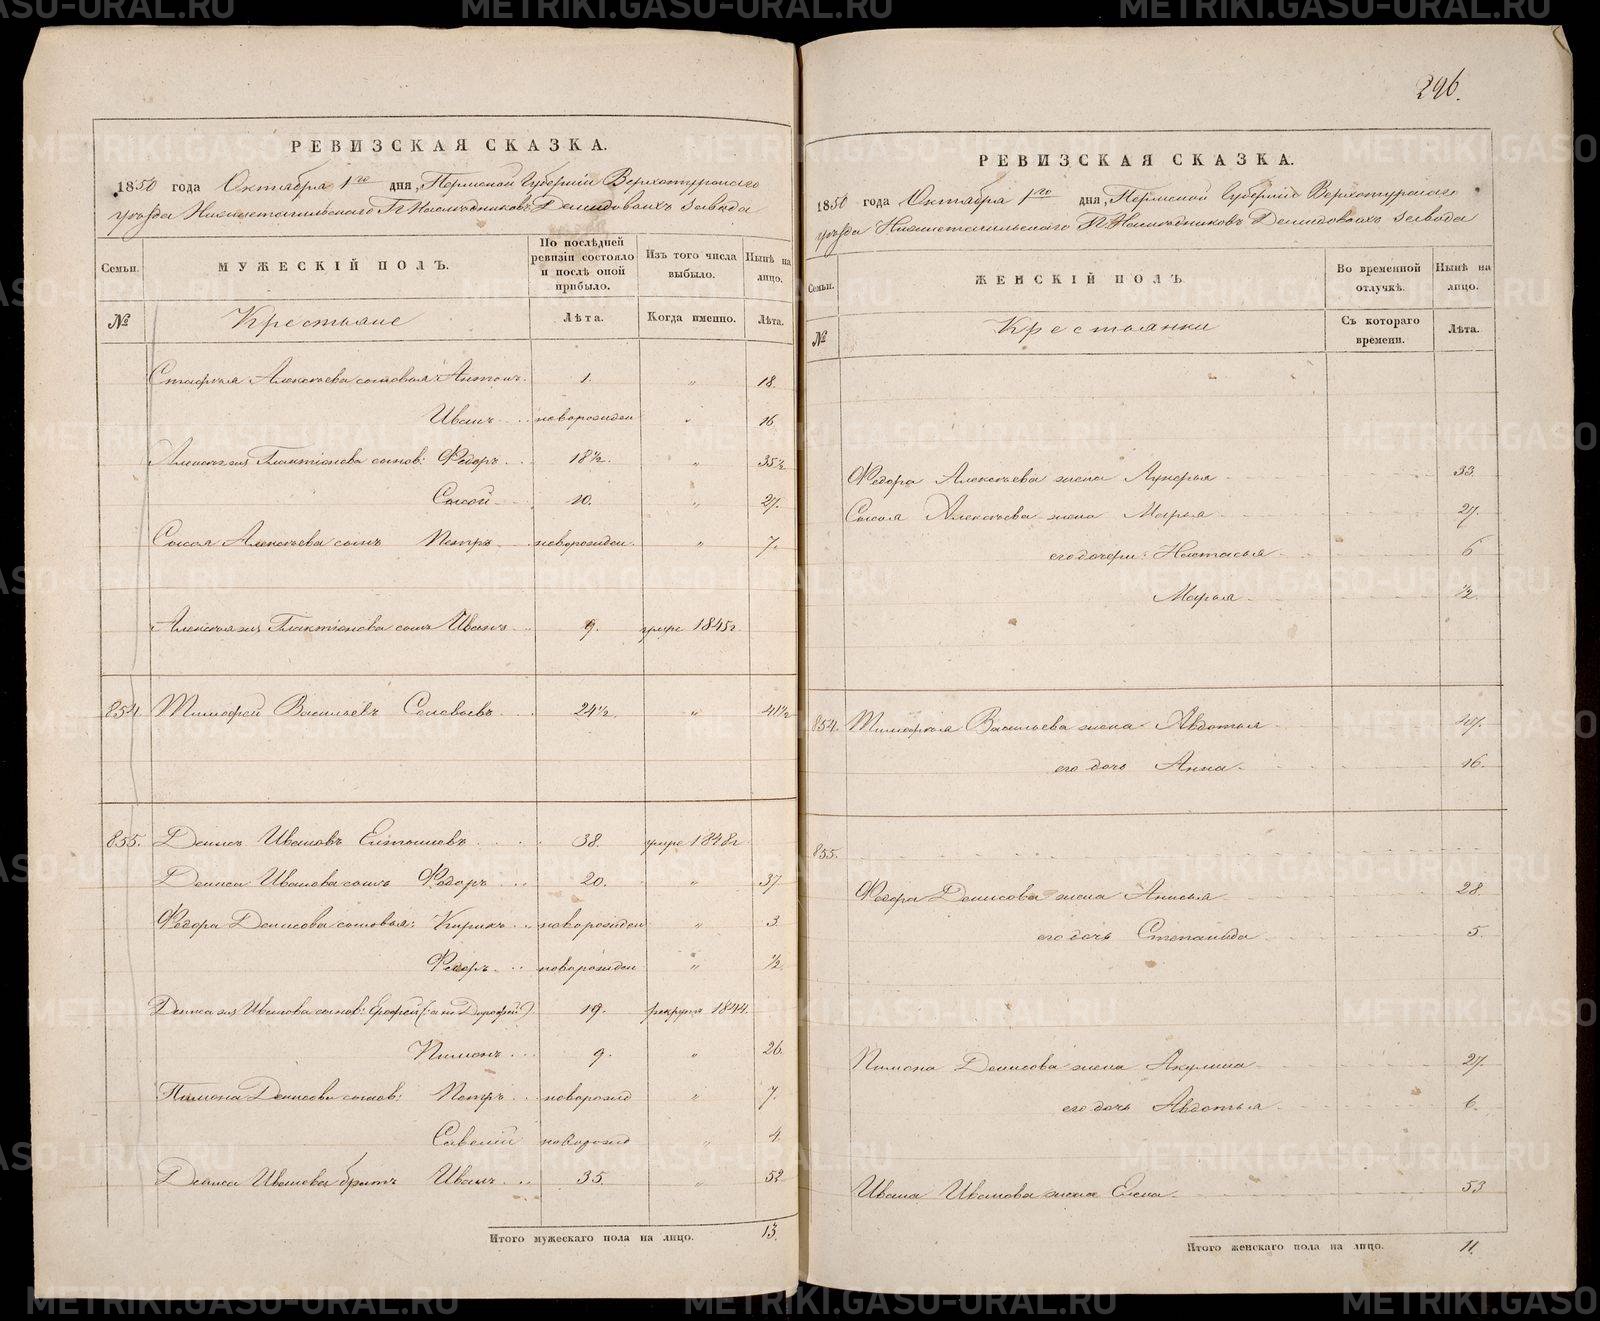 РЕВИЗСКАЯ СКАЗКА.
1850 года Октября 1го дня, Пермской Губернии Верхотурскаго
уезда Нижнетагильскаго Г.Г. Наследниковъ Демидовыхъ завода
Семьи. МУЖЕСКІЙ ПОЛЪ. По послѣдней ревизіи состояло и послѣ оной прибыло. Изъ того числа выбыло. Нынѣ на лицо.
№ Крестьяне Лѣта. Когда именно. Лѣта.
Алексеева сыновья: Антонъ 1. " 18.
Иванъ новорожден " 16
Галактіонова сынов: Федоръ 18½. " 35½
Сысой 10. " 27.
Сысоя Алексеева сынъ Петръ новорожден. " 7.
Галактіонова сынъ Иванъ 9. умре 1845г.
854. Тимофей Васильевъ Соловьевъ 24½ " 41½
855. Денис Ивановъ 38. умре 1848г
Дениса Иванова сынъ Федоръ 20. " 37
Федора Денисова сыновья: Кирикъ новорожден " 3
Федоръ новорожден " ½
Дениса Иванова сынов: Ерофей (: а не Дорофей) 19. рекрутъ 1844.
Пимонъ 9. " 26.
Пимона Денисова сынов: Петръ новорожд " 7.
Савелій новорожд " 4.
Дениса Иванова братъ Иванъ 35. " 52
Итого мужескаго пола на лицо. 13.
296.
РЕВИЗСКАЯ СКАЗКА.
1850 года Октября 1го дня, Пермской Губерніи Верхотурскаго
уезда Нижнетагильскаго Г.Г. Наследниковъ Демидовыхъ завода
Семьи. ЖЕНСКІЙ ПОЛЪ Во временной отлучкѣ. Нынѣ на лицо.
№ Крестьянки Съ котораго времени. Лѣта.
Федора Алексеева жена Лукерья 33.
Сысоя Алексеева жена Марья 27.
его дочери: Настасья 6
Марья ½.
854. Тимофея Васильева жена Авдотья
его дочь Анна 16.
855.
Федора Денисова жена Анисья 28.
его дочь Степанида 5.
Пимона Денисова жена Акулина 27.
его дочь Авдотья 6.
Ивана Иванова жена Елена 53
Итого женскаго пола на лицо. 11.
METRIKI.GASO-URAL.RU